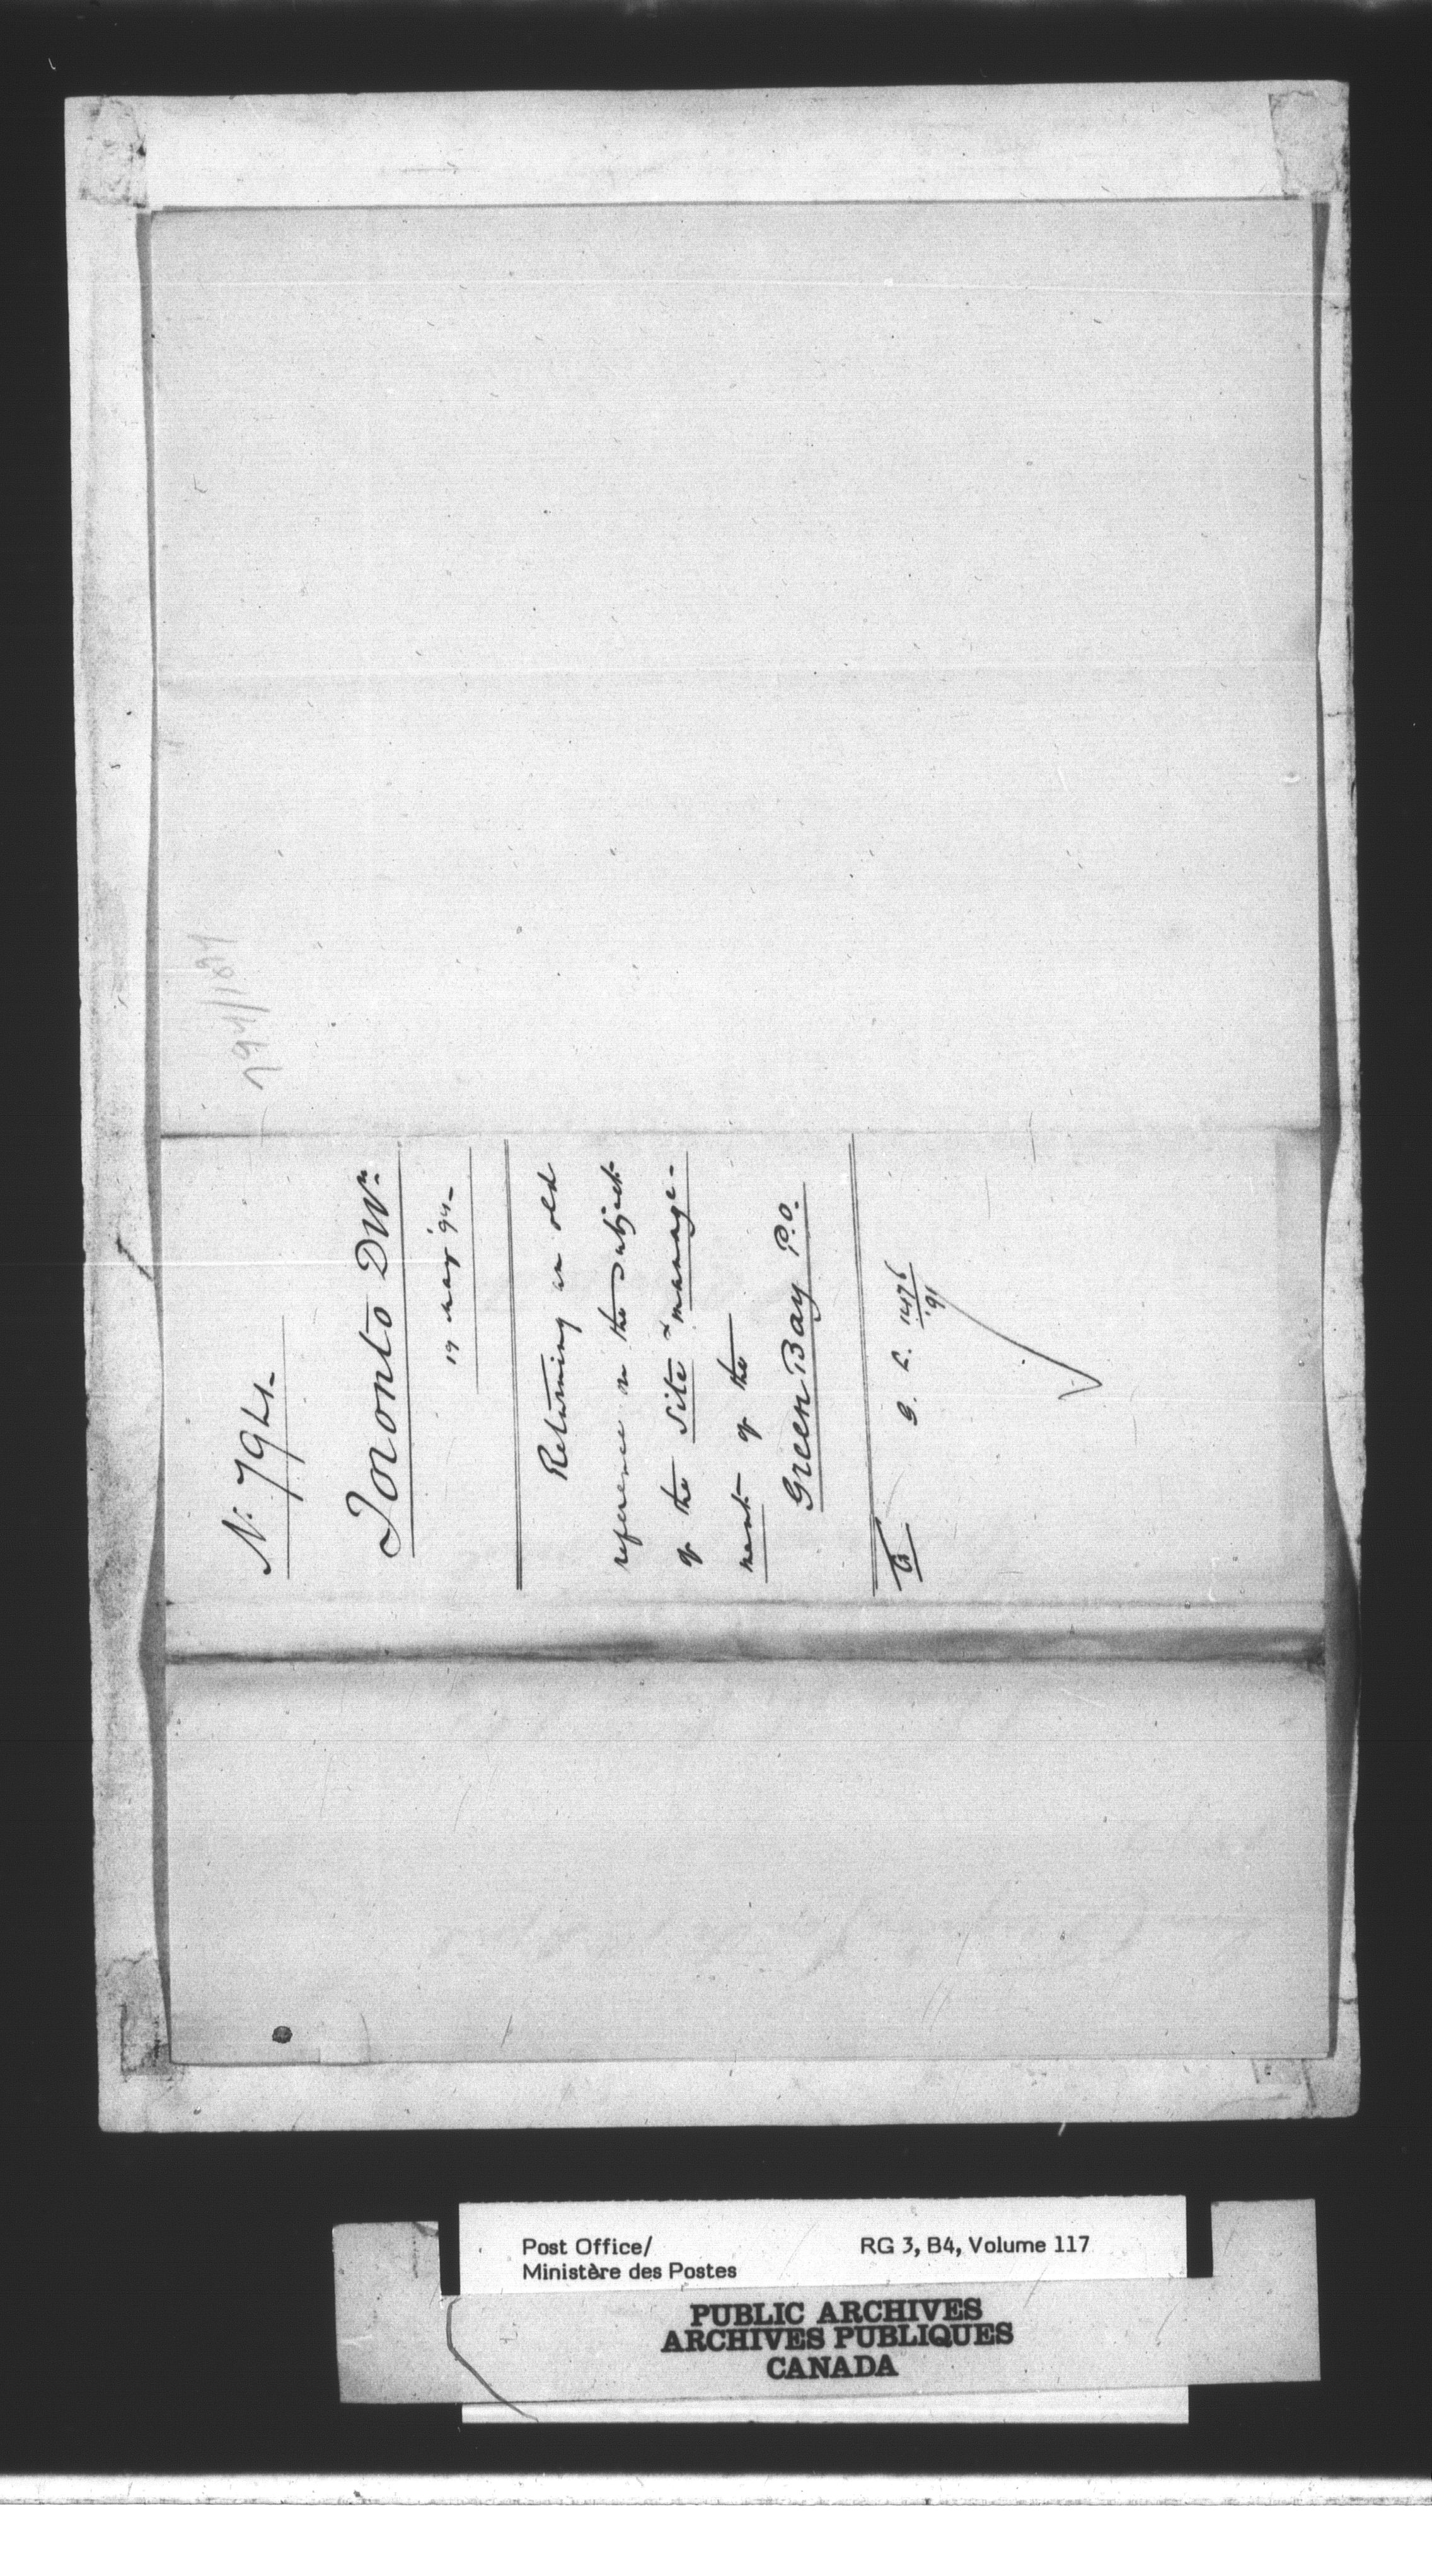 794/1894
No. 794.
Toronto Dn.
19 May '94.
Returning an old
reference on the subject
of the Site & manage-
ment of the
Green Bay P.O.
G. L. 1476/91
Post Office/
Ministère des Postes
RG 3, B4, Volume 117
PUBLIC ARCHIVES
ARCHIVES PUBLIQUES
CANADA